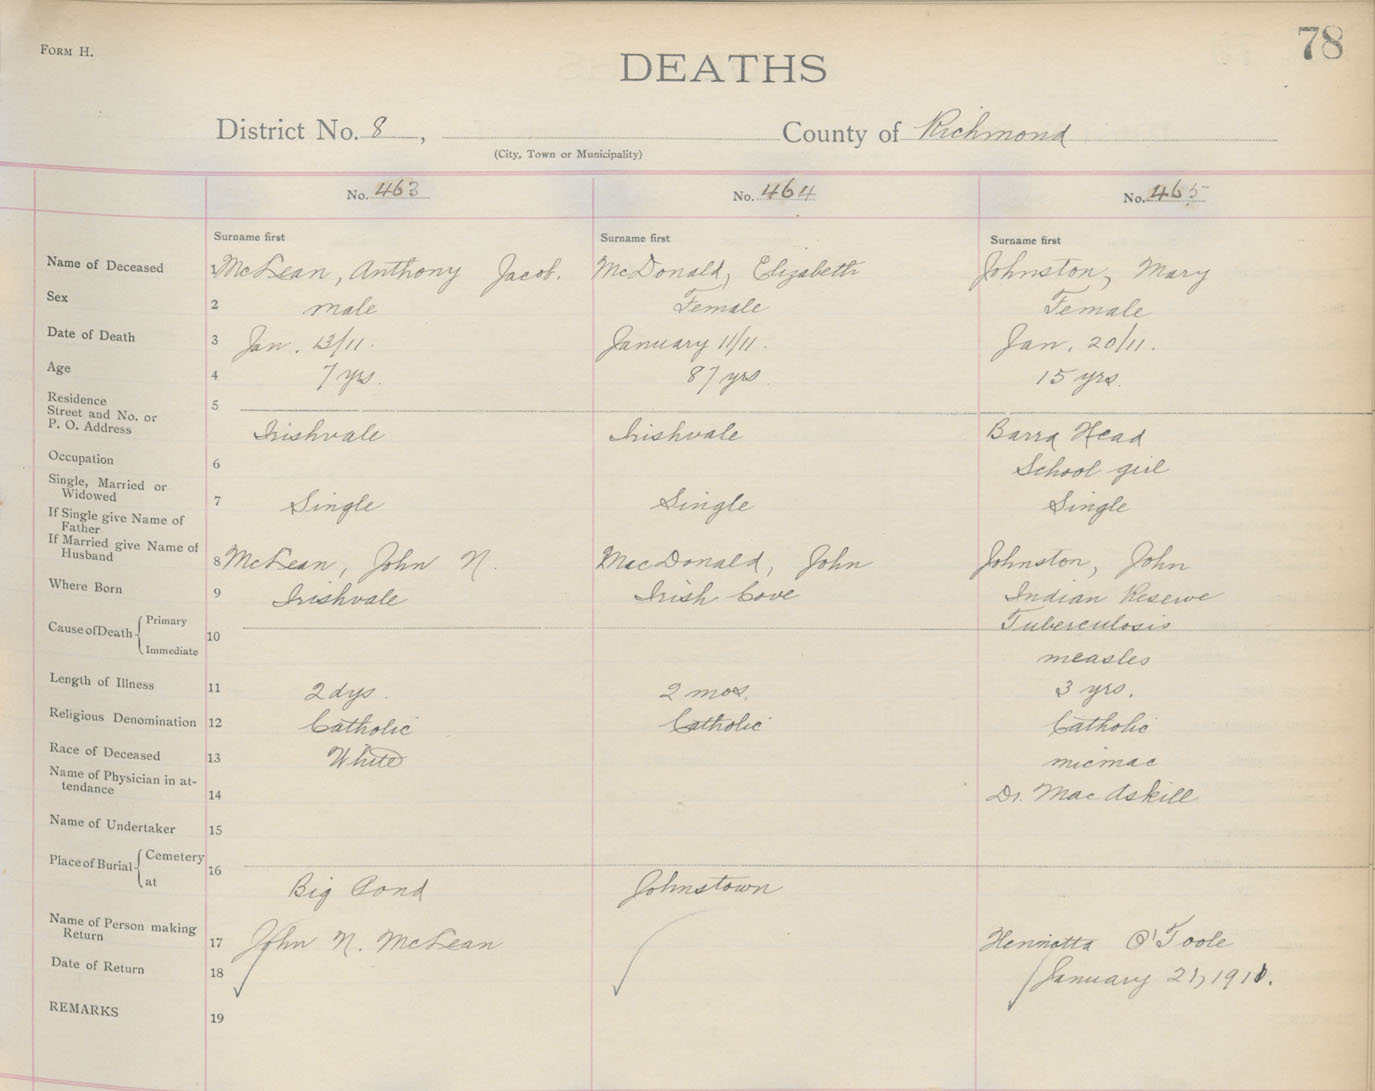 78
FORM H.
DEATHS
District No. 8, County of Richmond
(City, Town or Municipality)
No. 463 No. 464 No. 465
Surname first Surname first Surname first
Name of Deceased 1 McLean, Anthony Jacob. McDonald, Elizabeth Johnston, Mary
Sex 2 male Female Female
Date of Death 3 Jan. 13/11. January 11/11. Jan. 20/11.
Age 4 7 yrs. 87 yrs. 15 yrs.
Residence 5
Street and No. or
P. O. Address Irishvale Irishvale Barra Head
Occupation 6 School girl
Single, Married or
Widowed 7 Single Single Single
If Single give Name of
Father
If Married give Name of
Husband 8 McLean, John N. MacDonald, John Johnston, John
Where Born 9 Irishvale Irish Cove Indian Reserve
Cause of Death Primary 10 Tuberculosis
Immediate measles
Length of Illness 11 2 dys. 2 mos. 3 yrs.
Religious Denomination 12 Catholic Catholic Catholic
Race of Deceased 13 White micmac
Name of Physician in at-
tendance 14 Dr. MacAskill
Name of Undertaker 15
Place of Burial Cemetery 16
at Big Pond Johnstown
Name of Person making
Return 17 John N. McLean Henrietta O'Toole
Date of Return 18 January 21, 1911.
REMARKS 19